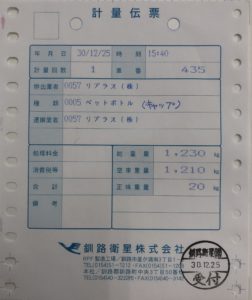 計量伝票
年月日 30/12/25 時刻 15:40
計量回数 1 車番 435
排出業者 0057 リプラス(株)
種類 0005 ペットボトル (キャップ)
運搬業者 0057 リプラス(株)
処理料金 総重量 1,230 kg
消費税等 空車重量 1,210 kg
合計 正味重量 20 kg
備考
釧路衛星株式会社
釧路衛星
30.12.25
受付